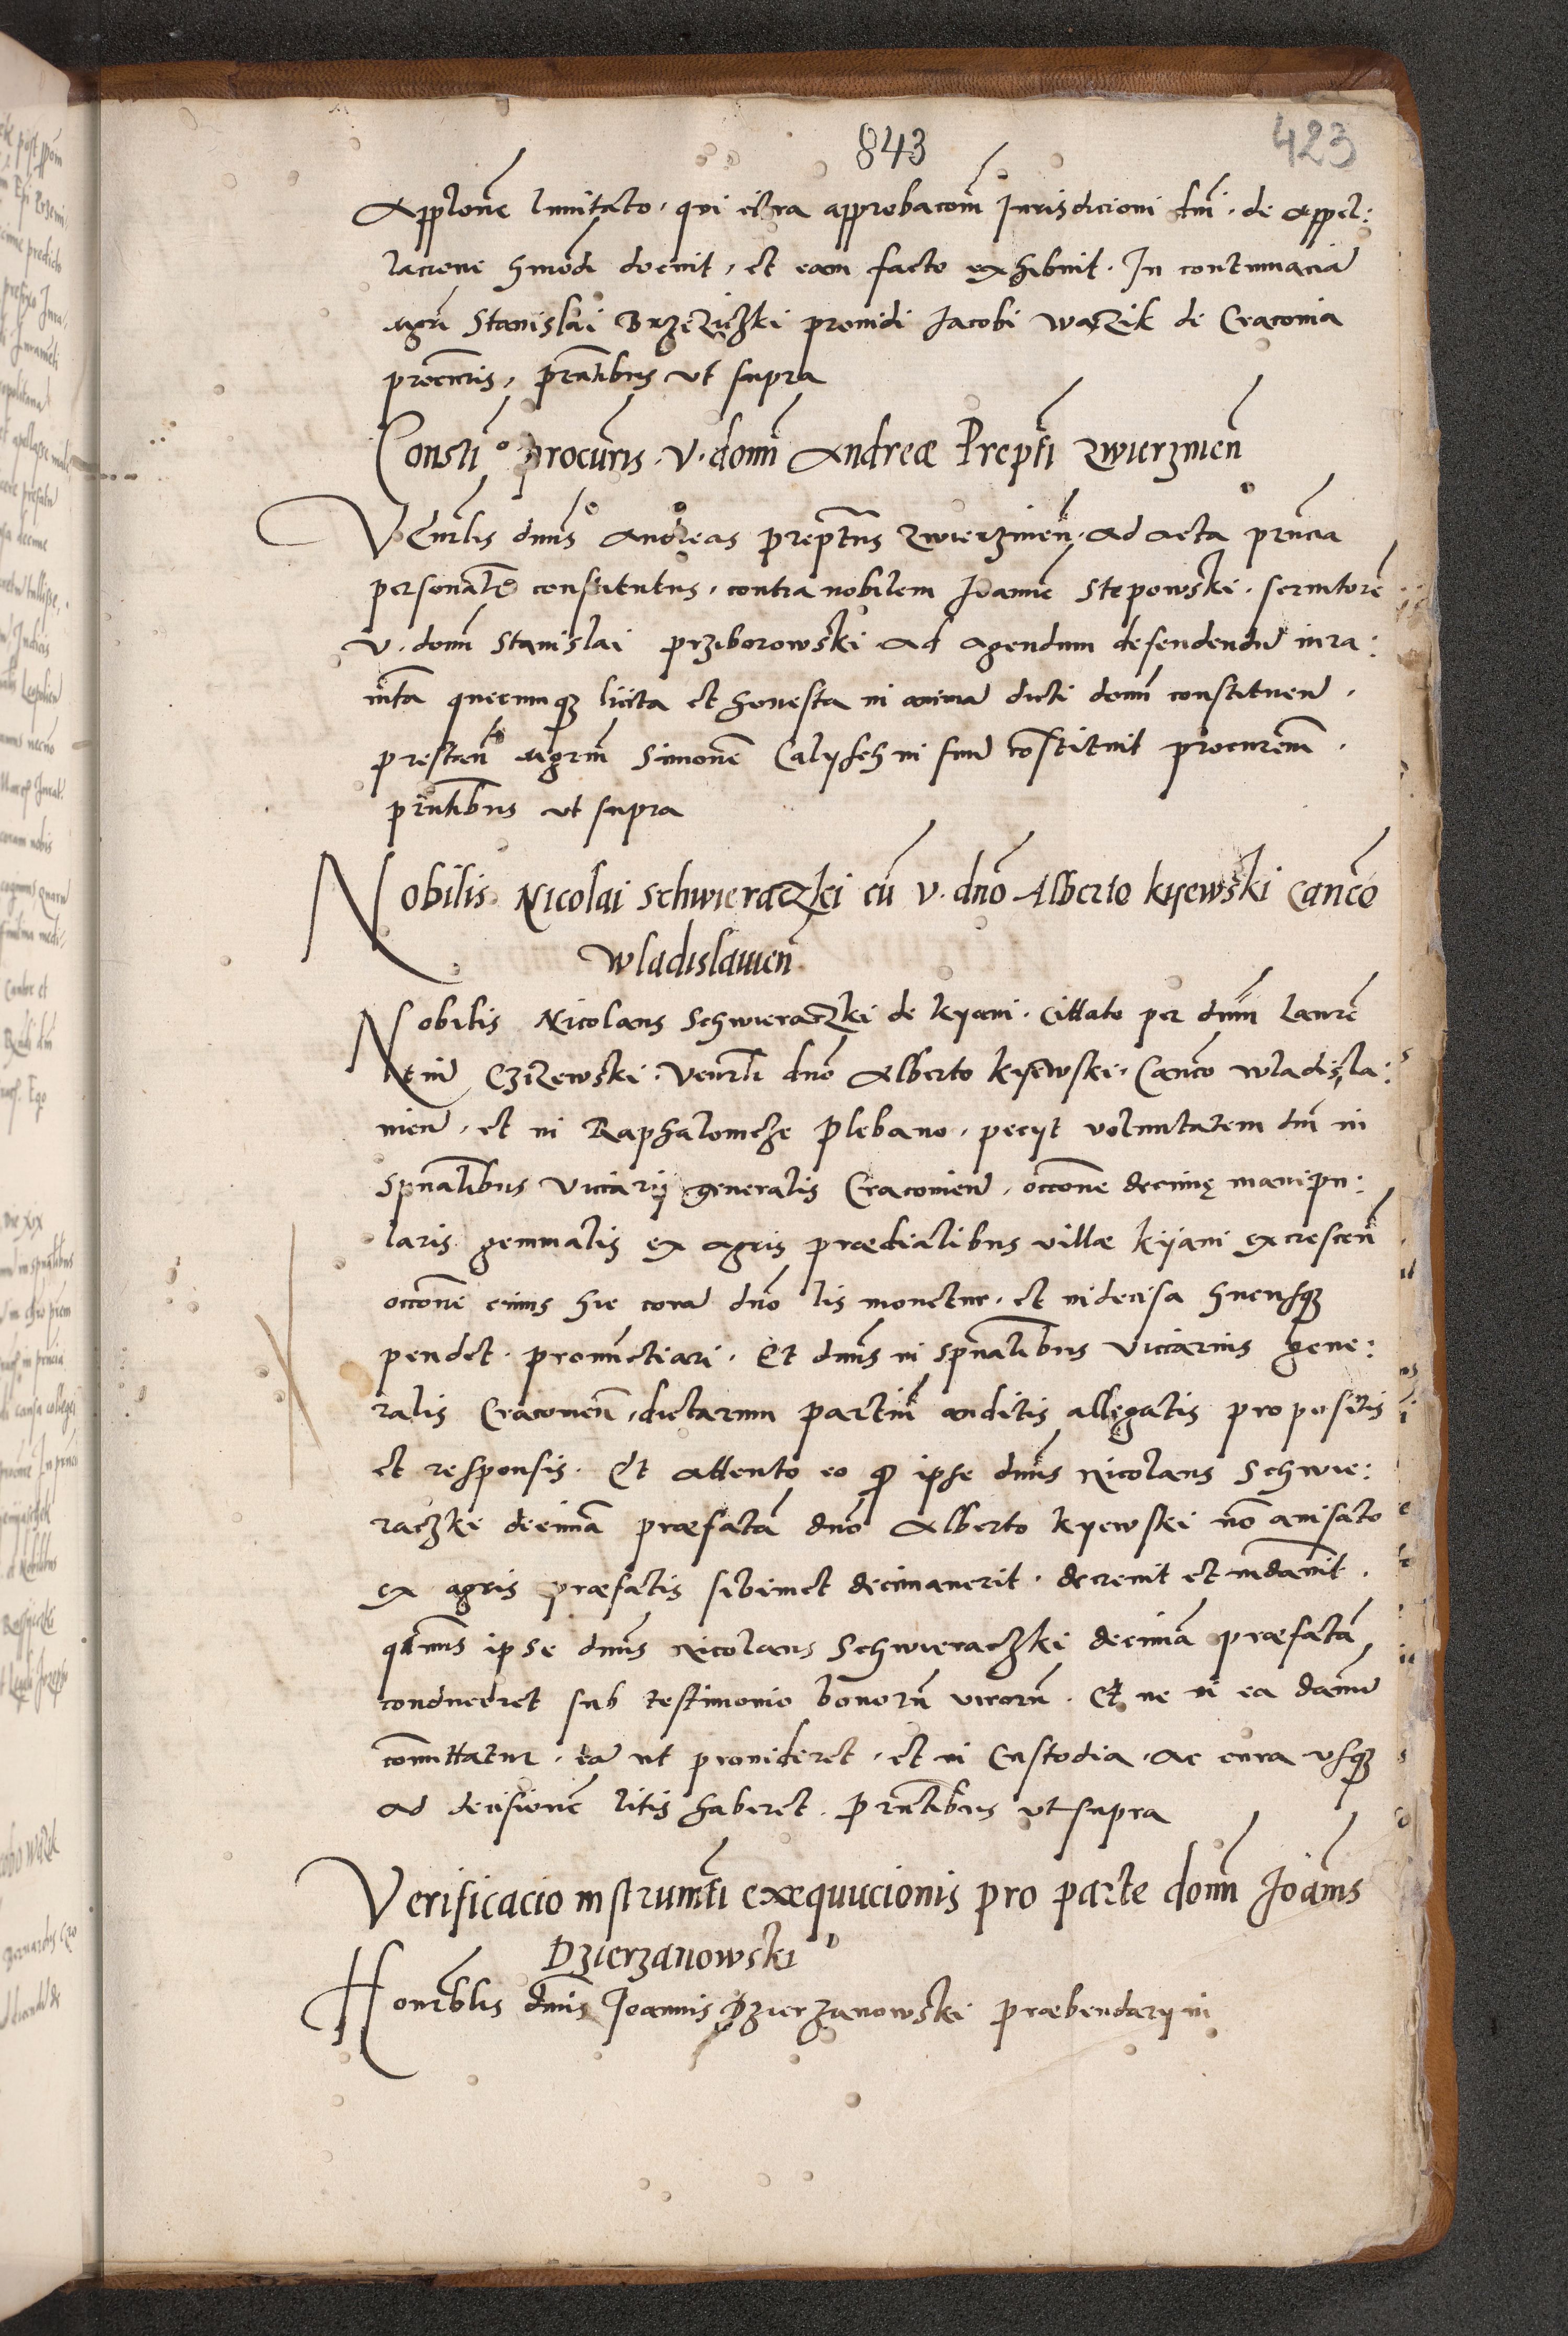 843
423
Applone limitato, qui citra approbacom Jurisdicioni dni, de appel:
lacione hmodi docuit, et eam facto exhibuit. In contumacia
Mgri Stanislai Brzeziczki providi Jacobi Wazik de Cracovia
procuris, prntibus ut supra
Consti o procuris. V. domi Andreæ Prepti Zwierzinen
Venerlis dnus Andreas prepts Zwierzinen, ad acta prncia
personalr constitutus, contra nobilem Joanne Stepowski, servitore
V. domi Stanislai Przborowski ad agendum defendendu iura:
mta quecunqz licita et honesta in anima dicti domi constituen,
prestan Mgrm Simone Calysch in suu constituit procurem,
prntibus ut supra
Nobilis Nicolai Schwieraczki cu V. dno Alberto Kyewski Canco
Wladislauien
Nobilis Nicolaus Schwieraczki de Kyani, cittato per dnum Laure
ntiu Czizewski, Venrli dno Alberto Kyewski, Canco Wladisla:
uien, et in Raphalowicze Plebano, pecyt voluntatem dni in
Spualibus Vicarij generalis Cracovien, occone decimę manipu:
laris gemmalis ex agris prædialibus villæ Kyiani excrescen
occone cuius hic cora dno lis monetur, et indecisa hucusqz
pendet, pronunctiari. Et dnus in spualibus Vicarius gene:
ralis Cracovien, dictarum partiu auditis allegatis propositis
et responsis. Et attento eo qd ipse dnus Nicolaus Schwie:
raczki decima præfata dno Alberto Kyewski no avisato
ex agris præfatis sibimet decimaverit, decrevit et mdavit,
qtnus ipse dnus Nicolaus Schwieraczki decima præfata
conduceret sub testimonio bonoru viroru. Et ne in ea damnu
committatur, ea ut provideret, et in Custodia, ac cura usqz
ad decisione litis haberet. Prntibus ut supra
Verificacio instrumti exequucionis pro parte domi Joanis
Dzierzanowski
Honorblis dnus Joannis Dzierzanowski præbendarij in